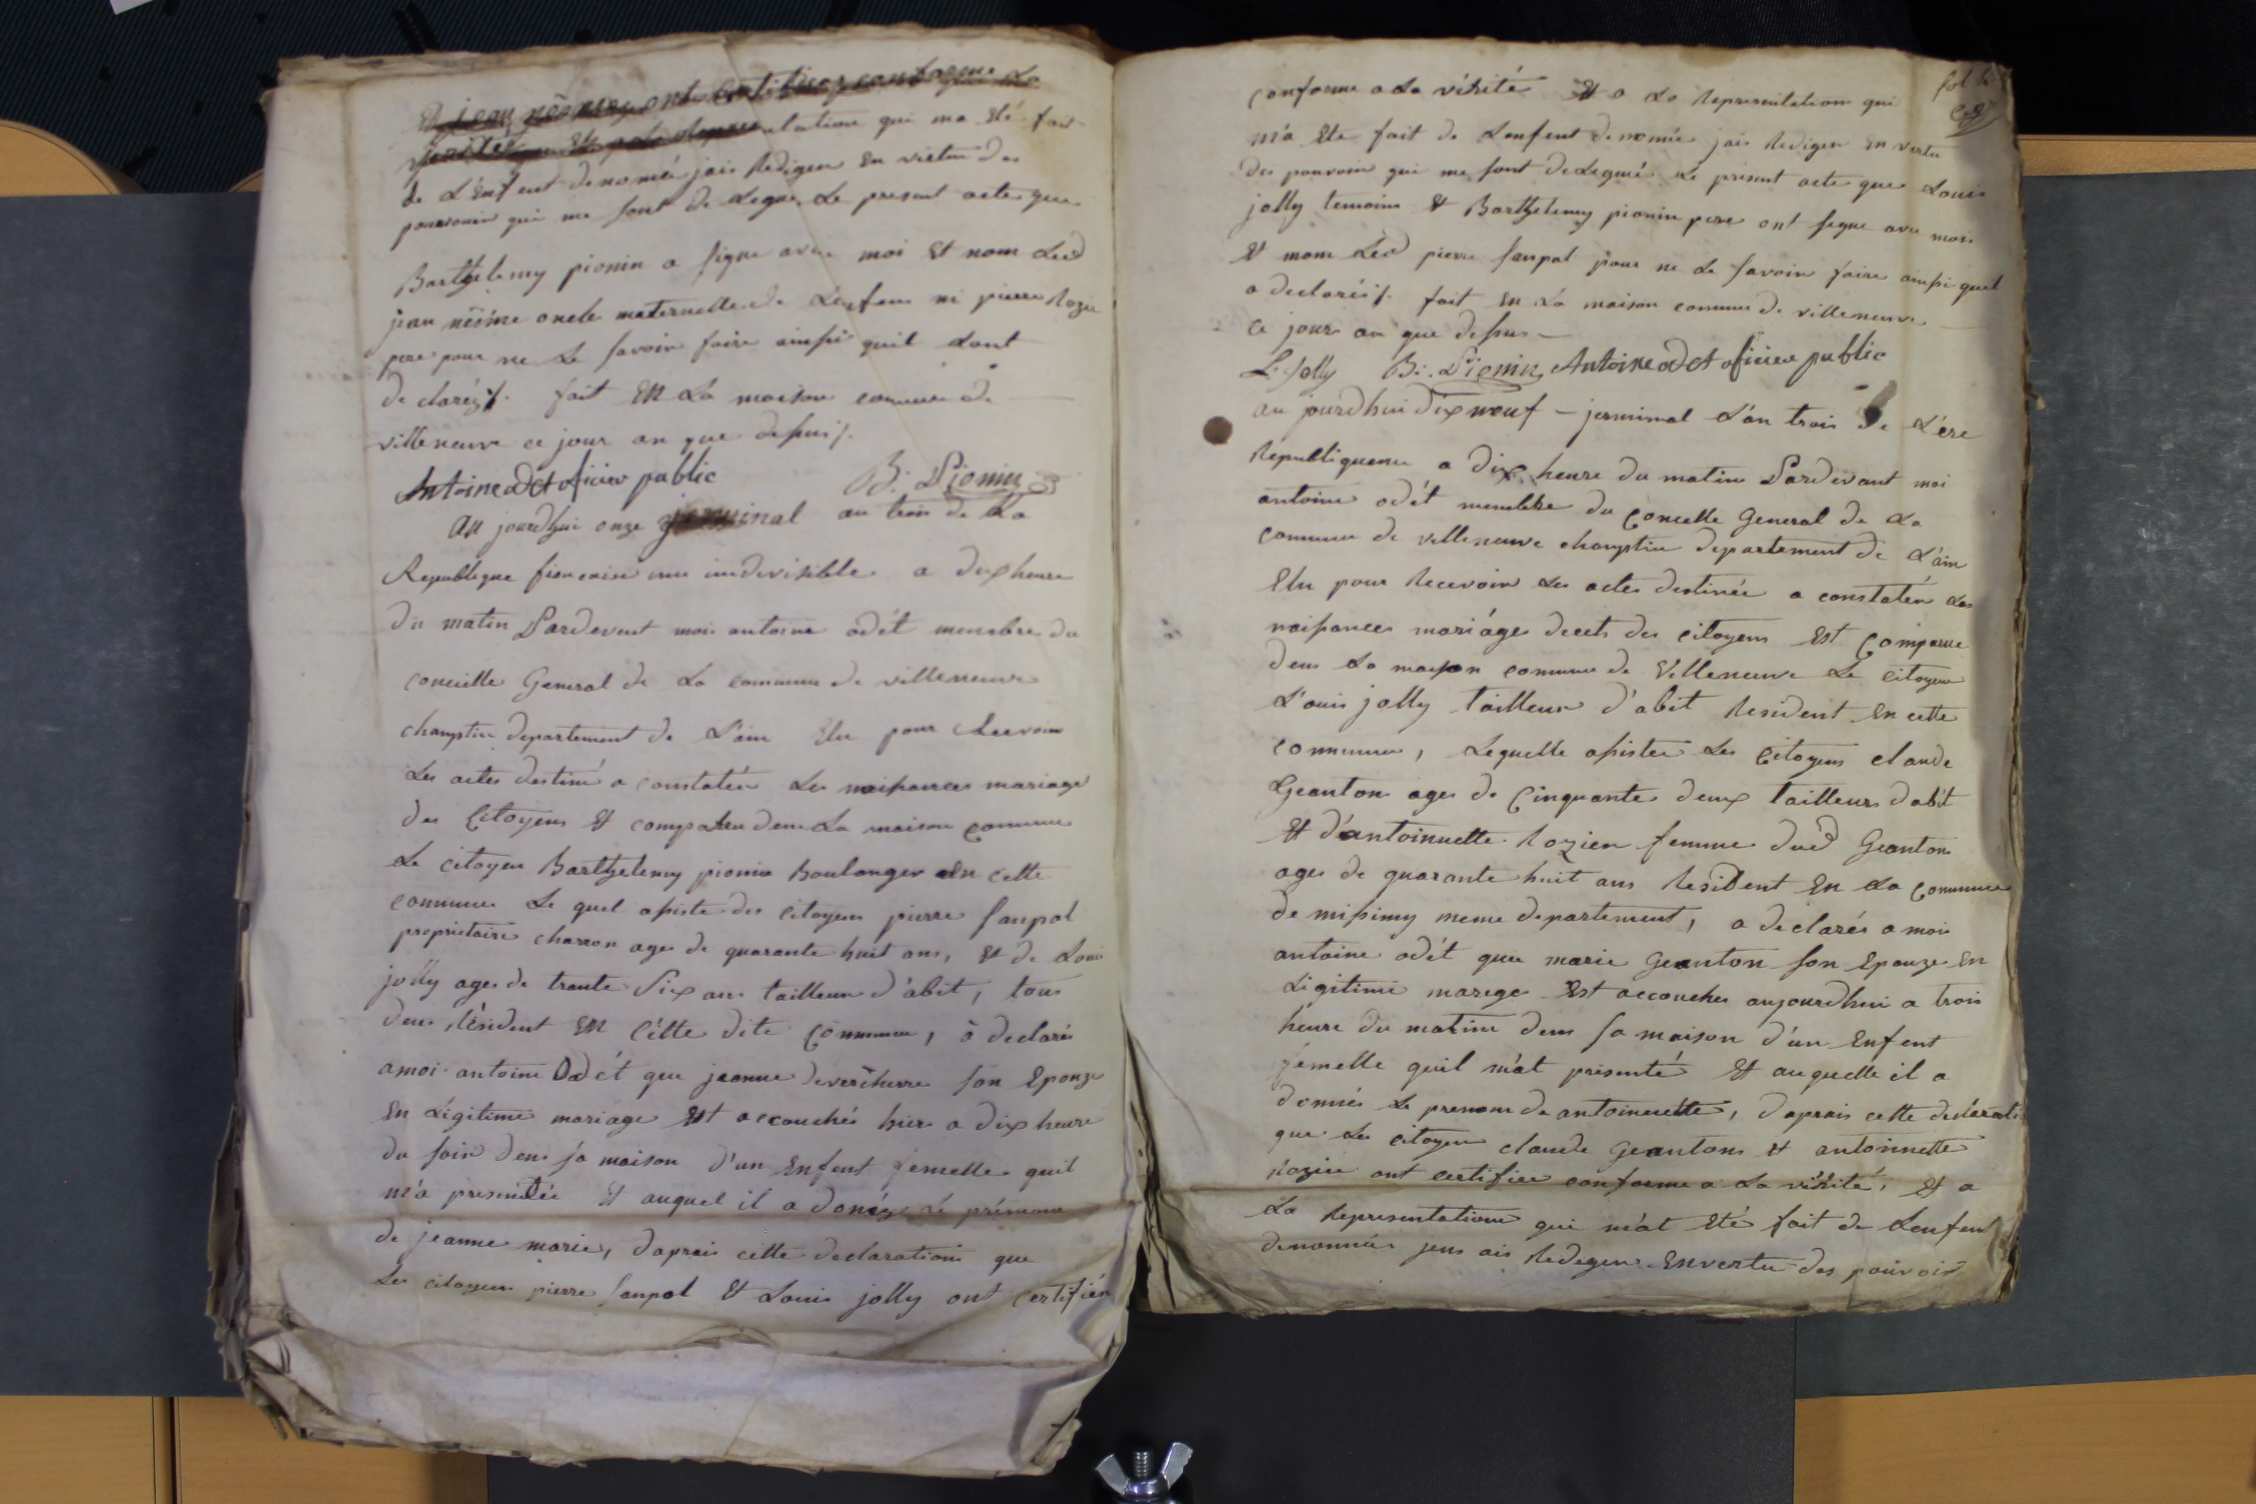 Et jean nesme ont certifier conforme La
vérité Et a la Representation qui ma Eté fait
de L'Enfent denomée jais Rediger En vertue des
pouvouir qui me sont de Legue Le present acte que
Barthelemy pionin a signe avec moi Et nom Led
jean nesme oncle maternelle de L'enfens ni pierre Rozier
pere pour ne Le savoir faire ainsi quil dont
declaréz/. fait En La maison commune de
villeneuve ce jour an que dessus/.
Antoine odet oficier public B: Pionin
Au jourdhui onze jerminal an trois de La
Republique francaise une indivisible a dix heure
du matin Pardevent moi antoine odét membre du
concielle General de La commune de villeneuve
champtin departement de L'ain Elu pour Recevoir
Les actes destiné a constatér Les naissances mariage
des Citoyens Et comparu dens La maison commune
Le citoyen Barthelemy pionin Boulanger En cette
commune Le quel assiste des citoyens pierre sanpol
proprietaire charron ages de quarante huit ans, Et de Louis
jolly ages de trante Six ans tailleur d'abit, tous
deux Résident En Cétte dite Commune, à declarés
amoi antoine Odét que jeanne deverchere son Epouze
En Légitime mariage Est accouchés hier a dix heure
du soir dens sa maison d'un Enfent femelle quil
m'a presentée Et auquel il a donéz Lé prénom
de jeanne marie, daprais cette declaration que
Les citoyens pierre sanpol Et Louis jolly ont certifiér
fol
conforme a La vérité Et a La Representation qui
m'a Ete fait de Lenfent denomée jais Rediger En vertu
des pouvoir qui me sont deLegué Le présent acte que Louis
jolly temoins Et Barthelemy pionin pere ont signe avec moi
Et nom Led pierre sanpol pour ne Le savoir faire ainsi quil
a declarés/. fait En La maison commune de villeneuve
ce jour an que dessus
L. Jolly B: Pionin Antoine odet oficier public
au jourdhui dix neuf jerminal L'an trois de L'ére
Republiquene a dix heure du matin Pardevant moi
antoine odét membre du concelle General de La
commune de villeneuve champtin departement de L'ain
Elu pour Recevoir Les actes destinée a constatér Les
naissances mariáge decets des citoyens Est Comparue
dens La maison commune de Villeneuve Le citoyen
L'ouis jolly tailleur d'abit Resident En cette
commune, Lequelle assistee Les Citoyens claude
Geanton ages de Cinquante deux tailleurs dabit
Et d'antoinnette Rozier femme dud Geanton
ages de quarante huit ans Resident En La Commune
de missimy meme departement, a declarés a moi
antoine odét que marie Geanton son Epouze En
Légitime marege Est accouches aujourdhui a trois
heure du matin dens sa maison d'un Enfent
femelle quil m'at présenté Et auquelle il a
donnés Le prenom de antoinette, daprais cette declarati
que Les citoyen claude Geanton Et antoinnette
Rozier ont certifier conforme a La vérité, Et a
La Representation qui m'at Eté fait de Lenfent
denommée jens ais Rediger En vertu des pouvoir